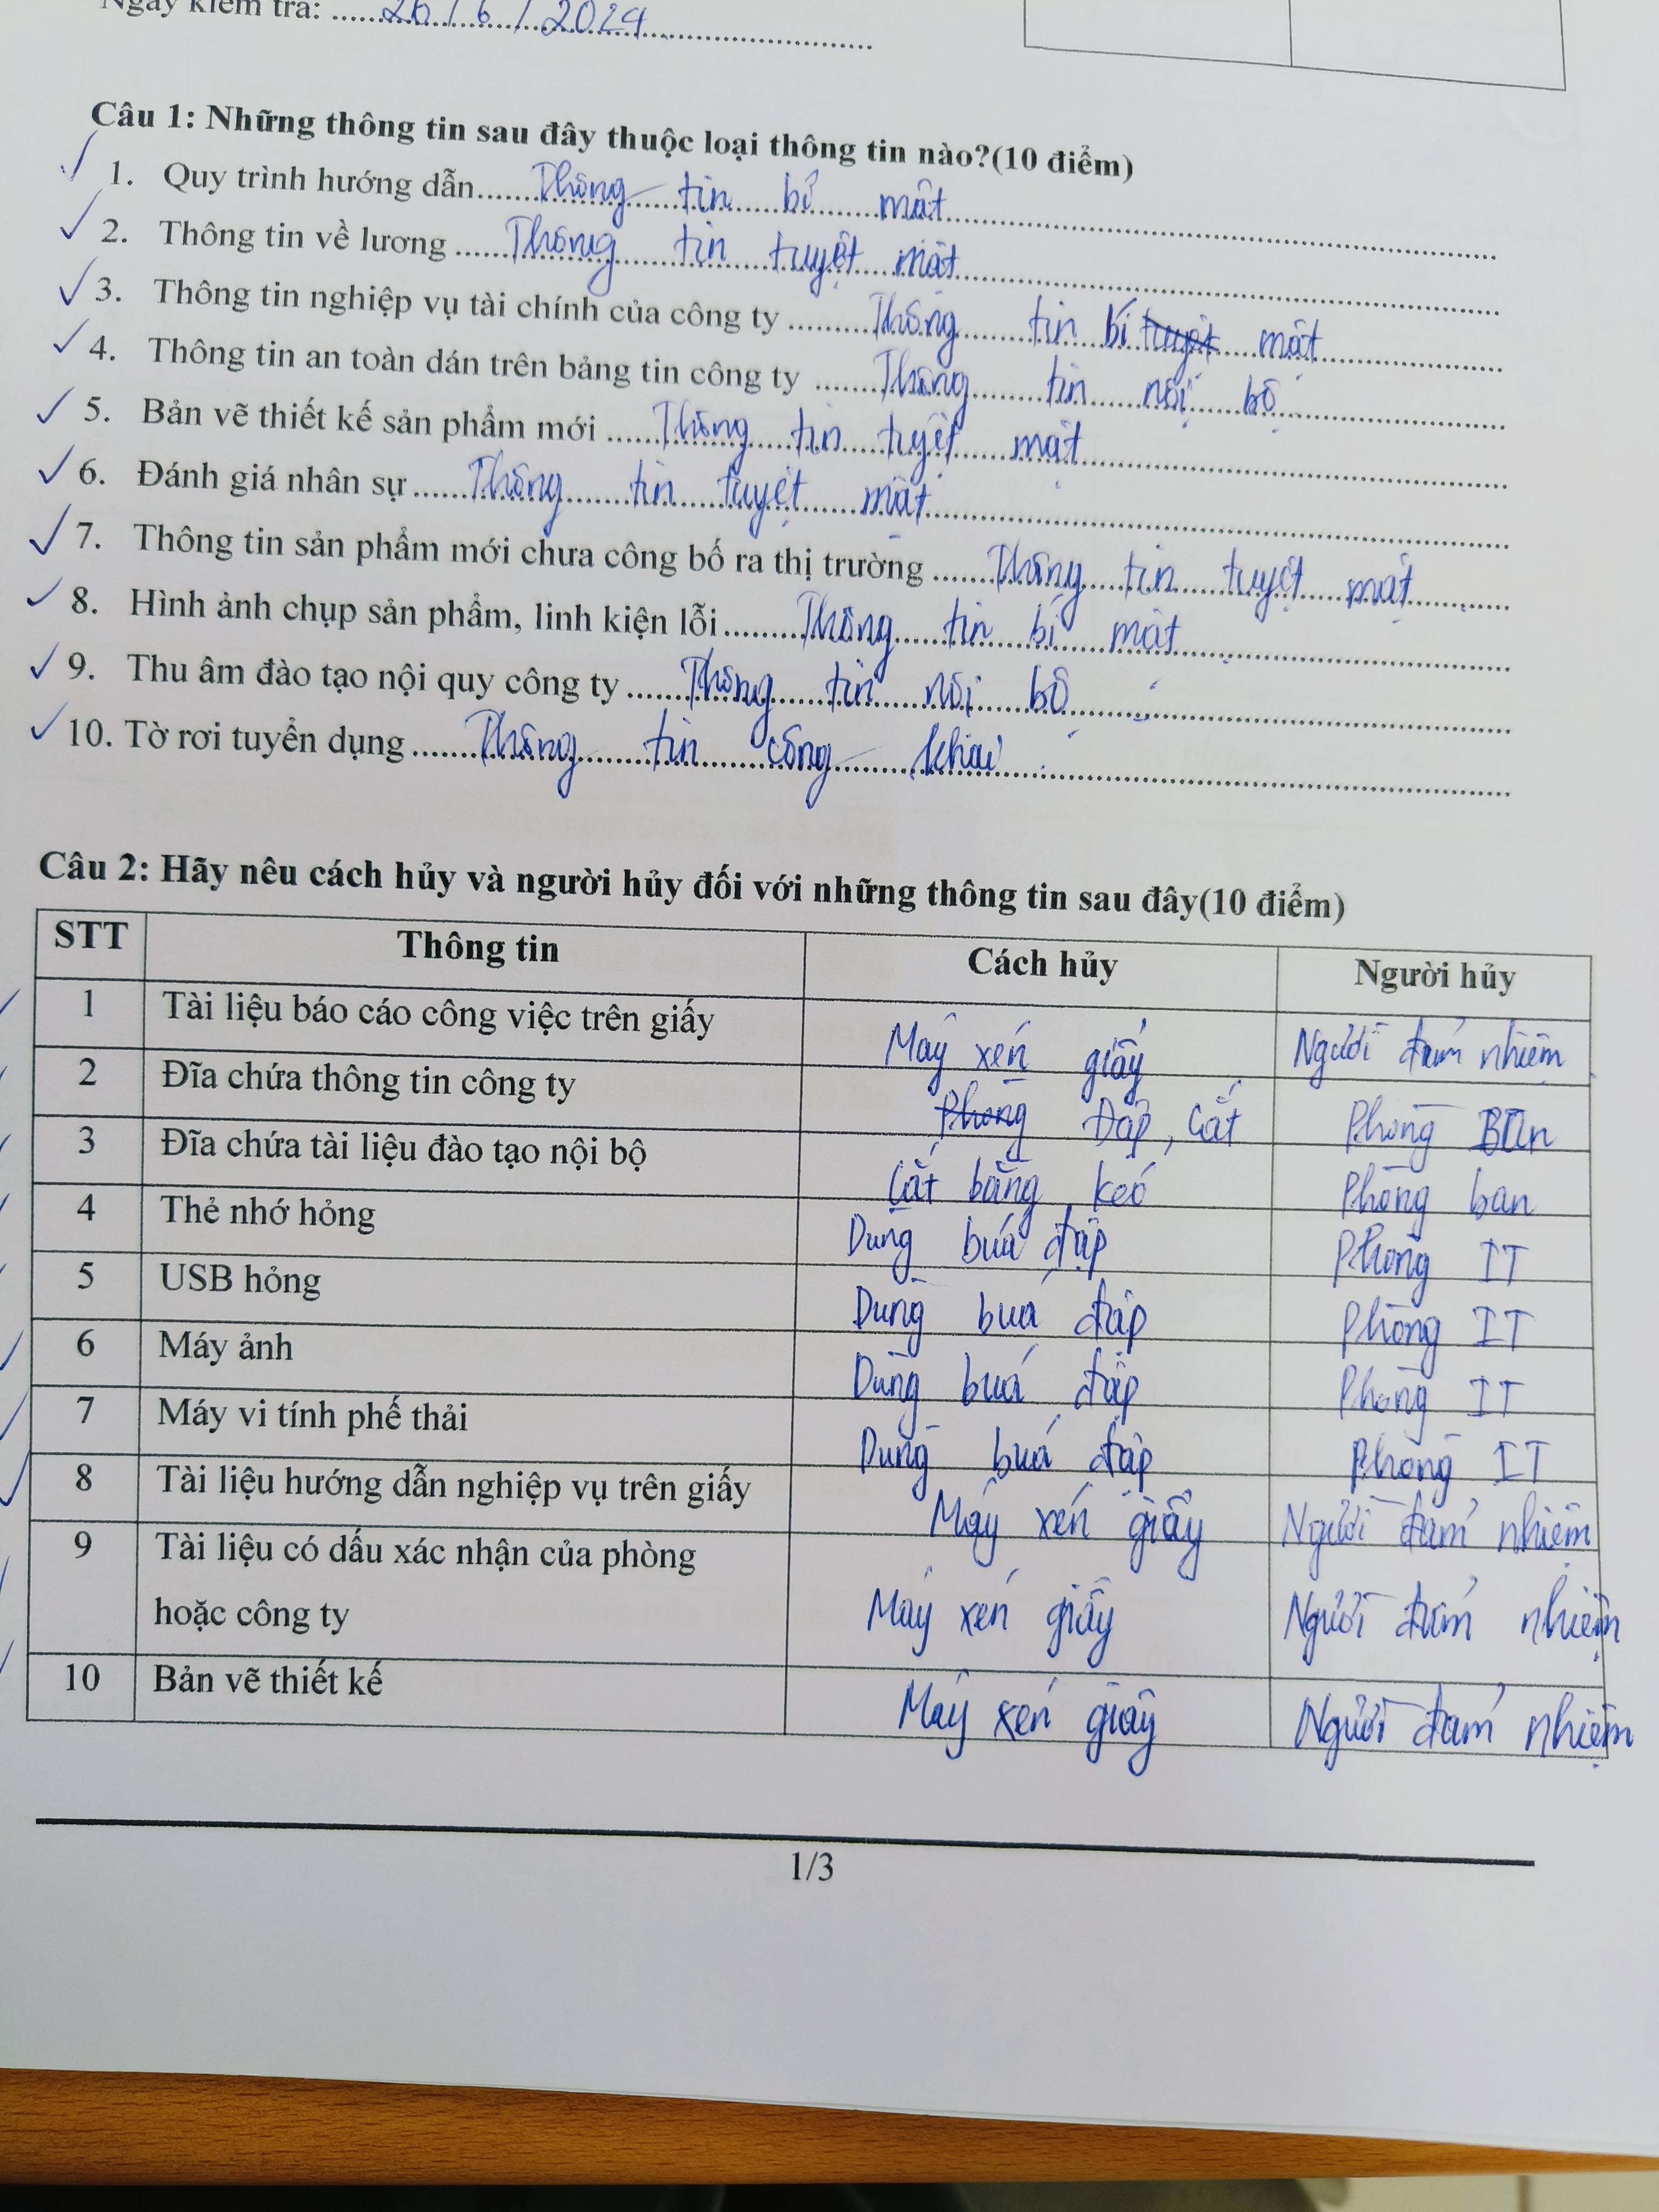 Ngày kiểm tra: 26/6/2024
Câu 1: Những thông tin sau đây thuộc loại thông tin nào?(10 điểm)
1. Quy trình hướng dẫn Thông tin bí mật
2. Thông tin về lương Thông tin tuyệt mật
3. Thông tin nghiệp vụ tài chính của công ty Thông tin bí tuyệt mật
4. Thông tin an toàn dán trên bảng tin công ty Thông tin nội bộ
5. Bản vẽ thiết kế sản phẩm mới Thông tin tuyệt mật
6. Đánh giá nhân sự Thông tin tuyệt mật
7. Thông tin sản phẩm mới chưa công bố ra thị trường Thông tin tuyệt mật
8. Hình ảnh chụp sản phẩm, linh kiện lỗi Thông tin bí mật
9. Thu âm đào tạo nội quy công ty Thông tin nội bộ
10. Tờ rơi tuyển dụng Thông tin công khai
Câu 2: Hãy nêu cách hủy và người hủy đối với những thông tin sau đây(10 điểm)
STT Thông tin Cách hủy Người hủy
1 Tài liệu báo cáo công việc trên giấy Máy xén giấy Người đảm nhiệm
2 Đĩa chứa thông tin công ty Phòng Đập, Cắt Phòng Ban
3 Đĩa chứa tài liệu đào tạo nội bộ Cắt bằng kéo Phòng ban
4 Thẻ nhớ hỏng Dùng búa đập Phòng IT
5 USB hỏng Dùng búa đập Phòng IT
6 Máy ảnh Dùng búa đập Phòng IT
7 Máy vi tính phế thải Dùng búa đập Phòng IT
8 Tài liệu hướng dẫn nghiệp vụ trên giấy Máy xén giấy Người đảm nhiệm
9 Tài liệu có dấu xác nhận của phòng
hoặc công ty Máy xén giấy Người đảm nhiệm
10 Bản vẽ thiết kế Máy xén giấy Người đảm nhiệm
1/3